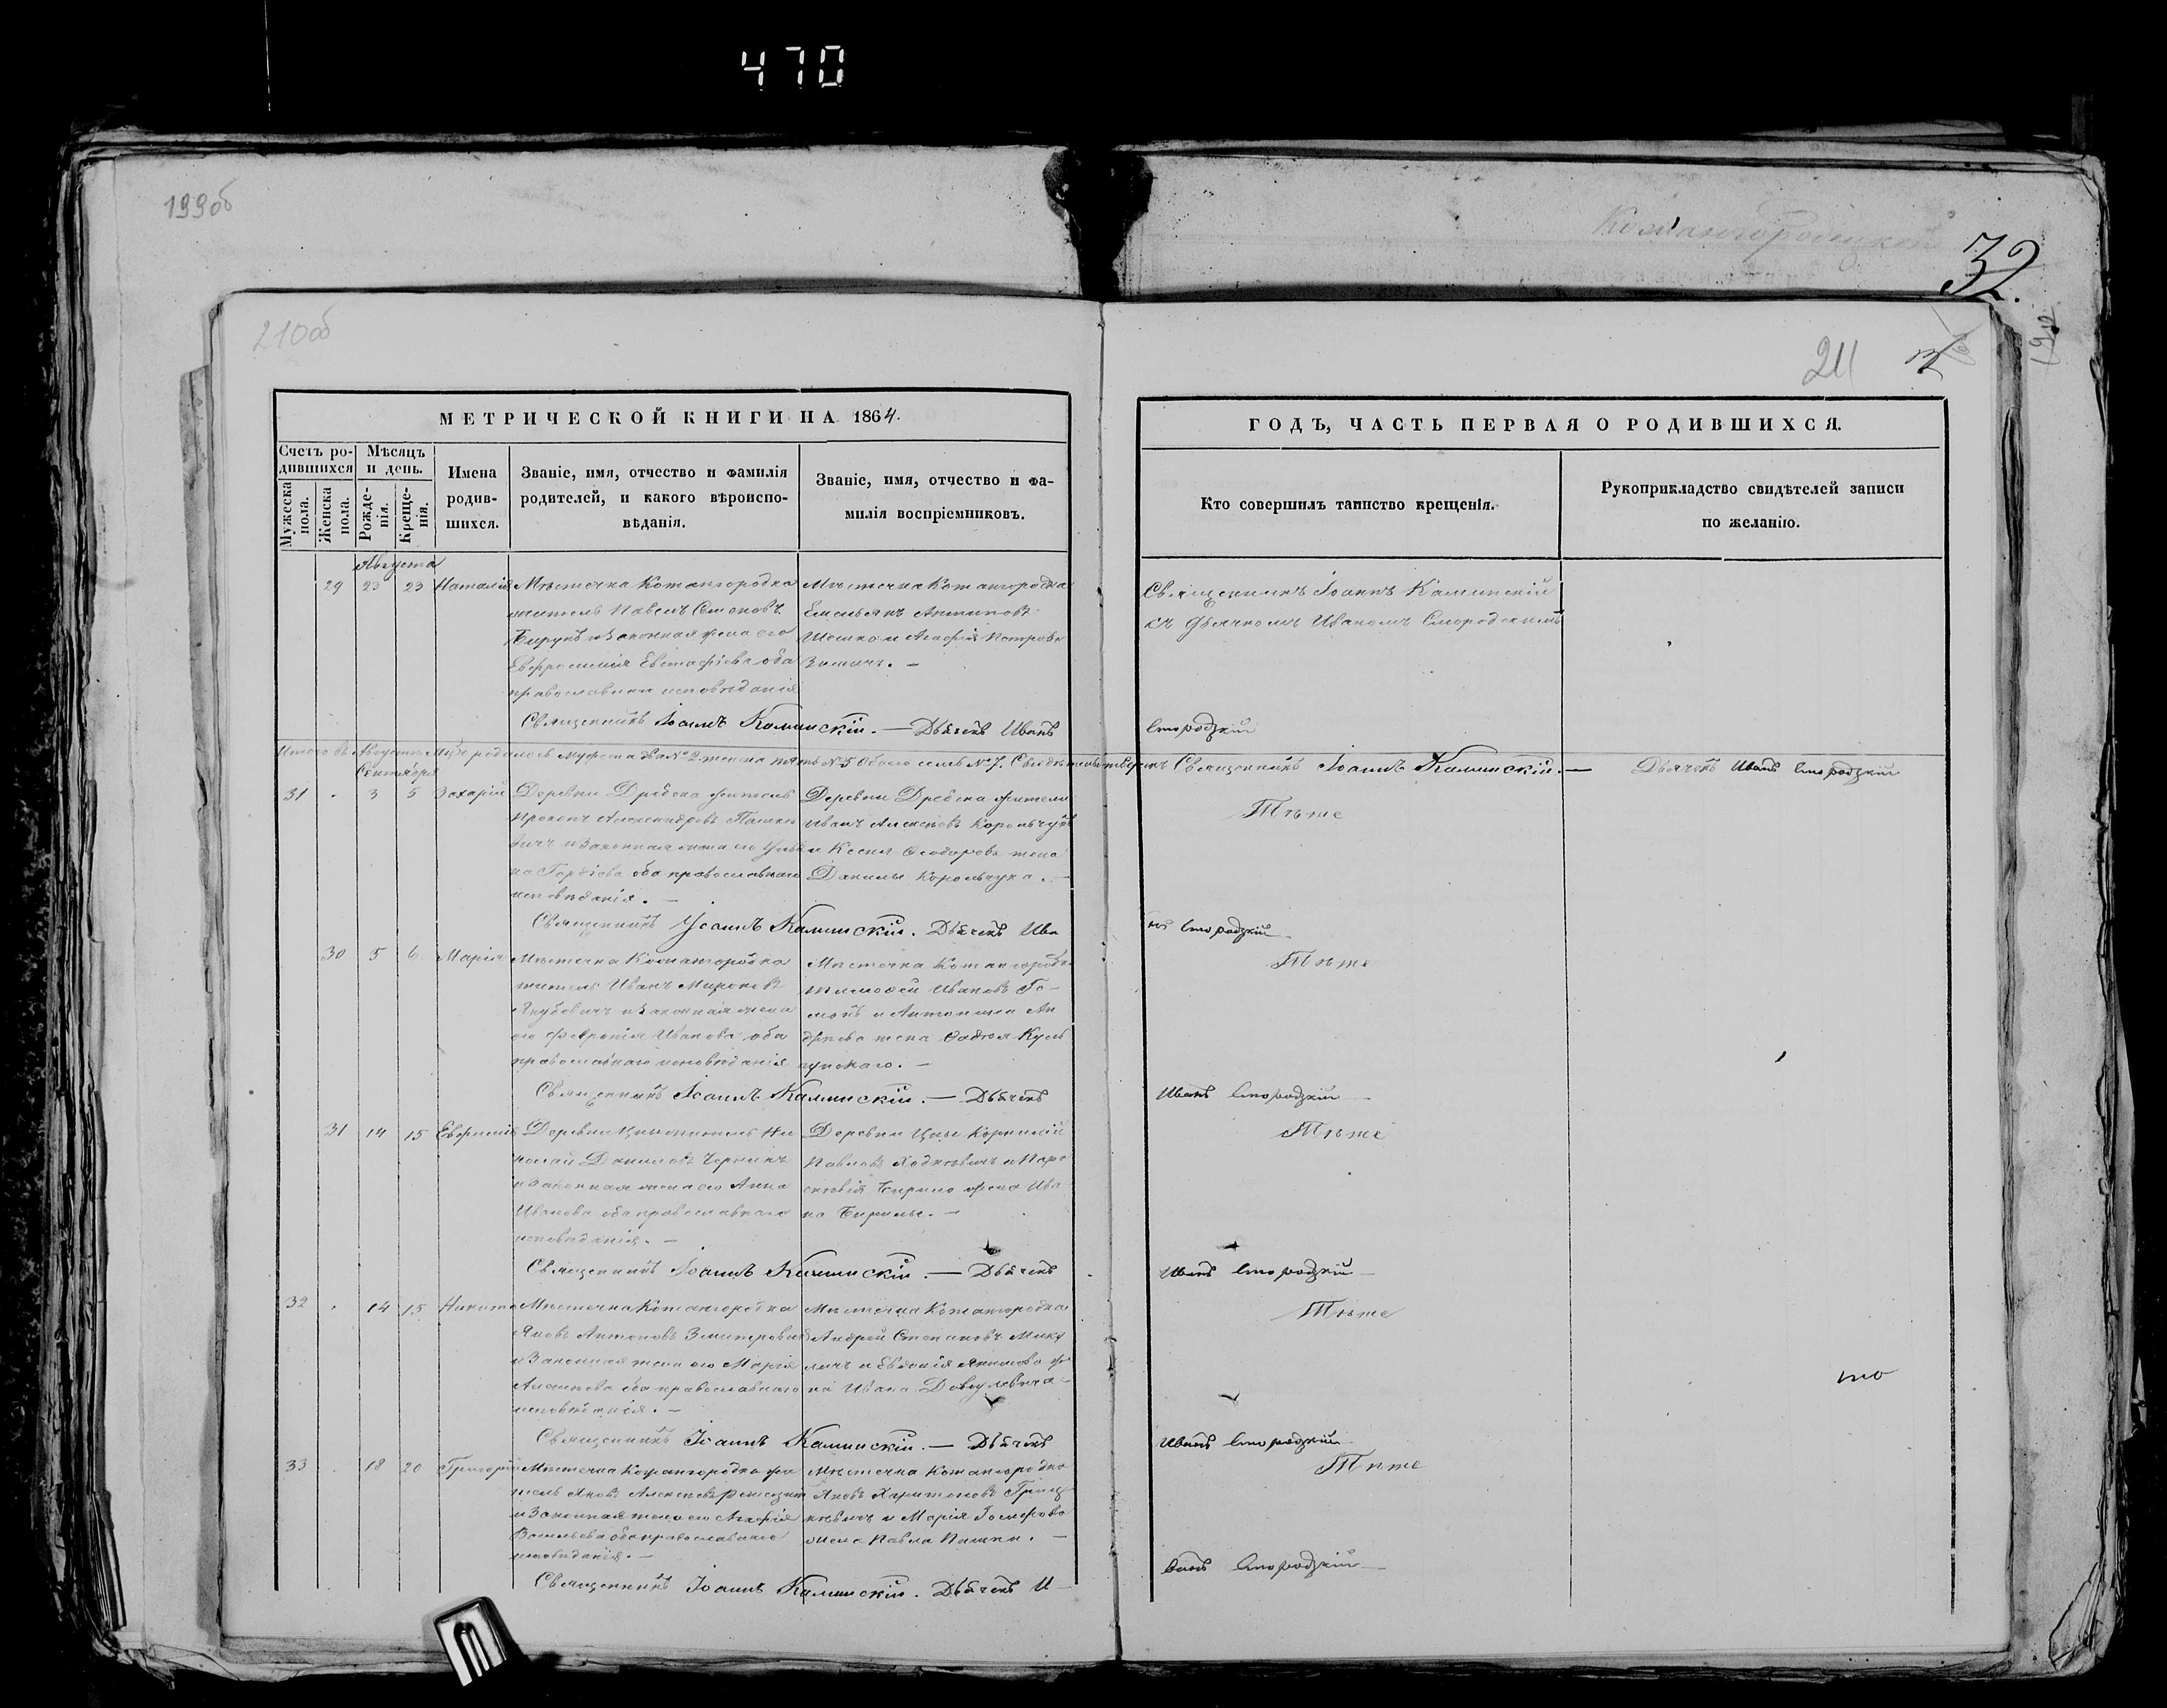 470
199об
Кожангородецкой
32.
210об
211
МЕТРИЧЕСКОЙ КНИГИ НА 1864.
Счетъ родившихся
Мѣсяцъ и день.
Мужеска пола.
Женска пола.
Рожденія.
Крещенія.
Имена родившихся.
Званіе, имя, отчество и фамилія родителей, и какого вѣроисповѣданія.
Званіе, имя, отчество и фамилія воспріемниковъ.
ГОДЪ, ЧАСТЬ ПЕРВАЯ О РОДИВШИХСЯ.
Кто совершилъ таинство крещенія.
Рукоприкладство свидѣтелей записи по желанію.
Августа
29 23 23 Наталія
Мѣстечка Кожангородка
житель Павелъ Семеновъ
и законная жена его
Евфросинія Евстафіева оба
православнаго исповѣданія
Мѣстечка Кожангородка
Емельянъ Антиповъ
и Агафія Петрова
Священникъ Іоаннъ Каминскій
съ Дьячкомъ Иваномъ Смородскимъ
Священникъ Іоаннъ Каминскій. — Дьячекъ Иванъ
Смородзкій
Итого въ Августѣ мцѣ родилось мужеска два №2 женска пять №5 Обоего семь №7.
Священникъ Іоаннъ Каминскій. — Дьячекъ Иванъ Смородзкій
Сентября
31 3 5 Захарій
Деревни Дребска житель
Прокопъ Александровъ Пашке
вичъ и законная жена его Улья
на Гордіева оба православнаго
исповѣданія. —
Деревни Дребска жители
Иванъ Алексѣевъ Корольчукъ
и Ксенія Ѳеодорова жена
Данилы Корольчука. —
Тѣже
Священникъ Іоаннъ Каминскій. Дьячекъ Ива
нъ Смородзкій
30 5 6 Марія
Мѣстечка Кожангородка
житель Иванъ Мироновъ
Якубовичъ и законная жена
его Февронія Иванова оба
православнаго исповѣданія
Мѣстечка Кожангородка
Тимофей Ивановъ Го-
и Антонина Ан
дреева жена
Тѣже
Священникъ Іоаннъ Каминскій. — Дьячекъ
Иванъ Смородзкій
31 14 15 Евфимія
Деревни Цны житель Ни
колай Даниловъ
и законная жена его Анна
Иванова оба православнаго
исповѣданія. —
Деревни Цны Корнилій
Павловъ Ходневичъ и Пара
скевія Кирило жена Ива
на Кирилы. —
Тѣже
Священникъ Іоаннъ Каминскій. — Дьячекъ
Иванъ Смородзкій
32 14 15 Никита
Мѣстечка Кожангородка
Яковъ Антоновъ Змитровичъ
и законная жена его Марія
оба православнаго
исповѣданія. —
Мѣстечка Кожангородка
Андрей Степановъ Мику
личъ и Евдокія Якимова же
на Ивана
Тѣже
Священникъ Іоаннъ Каминскій. — Дьячекъ
Иванъ Смородзкій
33 18 20 Григорій
Мѣстечка Кожангородка жи
тель Яковъ Алексѣевъ
и законная жена его Агафія
Васильева оба православнаго
исповѣданія. —
Мѣстечка Кожангородка
Яковъ Харитоновъ Гриц
кевичъ и Марія Іосифова
жена Павла Пашки. —
Тѣже
Священникъ Іоаннъ Каминскій. Дьячекъ И
ванъ Смородзкій